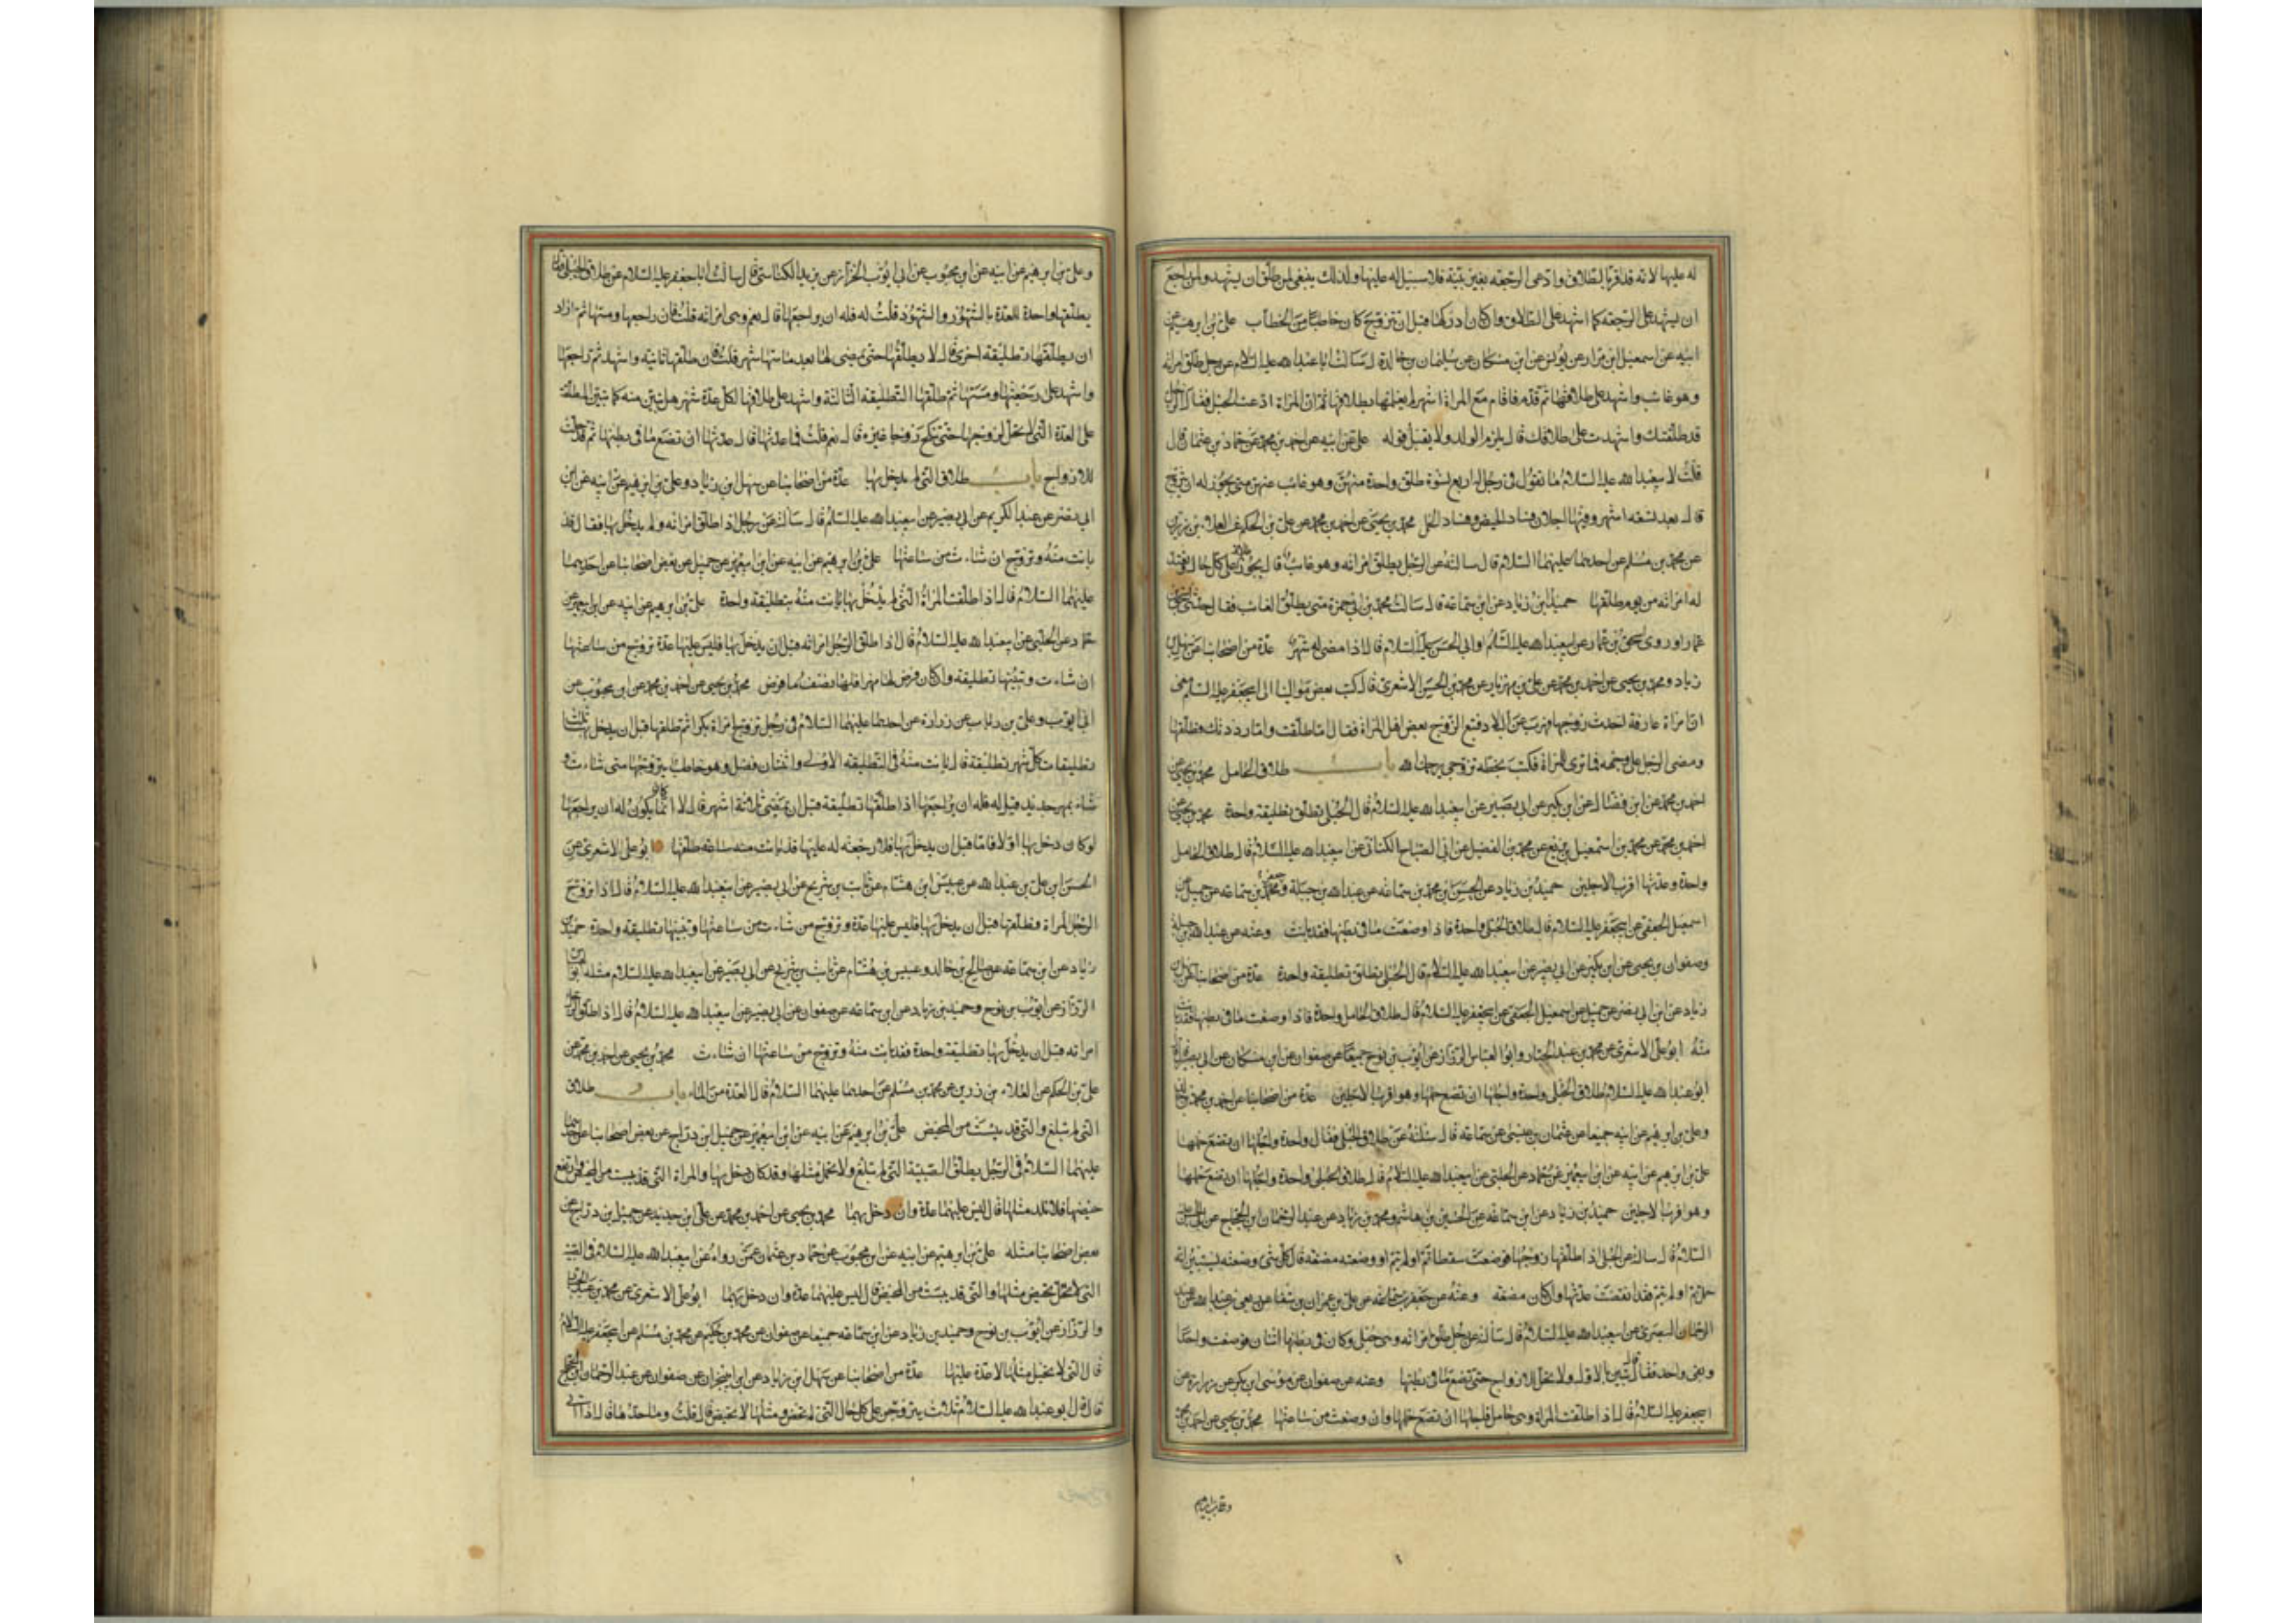 له عليها لانه قد اقر بالطلاق وادعى الرجعة بغير بينة فلا سبيل له عليها ولذلك ينبغي لمن طلق ان يشهد ولمن راجع
ان يشهد على الرجعة كما اشهد على الطلاق وان كان ادركها قبل ان تزوج كان خاطبا من الخطاب علي بن ابرهيم عن
ابيه عن اسمعيل ابن مرار عن يونس عن ابن مسكان عن سليمان بن خالد قال سالت ابا عبد الله عليه السلام عن رجل طلق امراته
وهو غائب واشهد على طلاقها ثم قدم فاقام مع المراة اشهرا لم يعلمها بطلاقها ثم ان المراة ادعت الحبل فقال الرجل
قد طلقتك واشهدت على طلاقك قال يلزم الولد ولا يقبل قوله علي عن ابيه عن احمد بن محمد عن حماد بن عثمان قال
قلت لابيعبد الله عليه السلام ما تقول في رجل له اربع نسوة طلق واحدة منهن وهو غائب عنهن متى يجوز له ان يتزوج
قال بعد تسعة اشهر وفيها اجلان فساد الحيض وفساد الحمل محمد بن يحيى عن احمد بن محمد عن علي بن الحكم عن العلاء بن رزين
عن محمد بن مسلم عن احدهما عليهما السلام قال سالته عن الرجل يطلق امراته وهو غائب قال يجوز طلاقه على كل حال وتعتد
له امراته من يوم طلقها حميد بن زياد عن ابن سماعة قال سالت محمد بن ابي حمزة متى يطلق الغائب فقال حدثني اسحق بن
عمار او روى اسحق بن عمار عن ابيعبد الله عليه السلام او ابي الحسن عليه السلام قال اذا مضى له شهر عدة من اصحابنا عن سهل بن
زياد ومحمد بن يحيى عن احمد بن محمد عن علي بن مهزيار عن محمد بن الحسن الاشعري قال كتب بعض موالينا الى ابيجعفر عليه السلام معي
ان امراة عارفة احدث زوجها فهرب عن البلاد فتبع الزوج بعض اهل المراة فقال اما طلقت واما رددتك فطلقها
ومضى الرجل على وجهه فما ترى للمراة فكتب بخطه تزوجي يرحمك الله باب طلاق الحامل محمد بن يحيى عن
احمد بن محمد عن ابن فضال عن ابن بكير عن ابي بصير عن ابيعبد الله عليه السلام قال الحبلى تطلق تطليقة واحدة محمد بن يحيى عن
احمد بن محمد عن محمد بن اسمعيل بن بزيع عن محمد بن الفضيل عن ابي الصباح الكناني عن ابيعبد الله عليه السلام قال طلاق الحامل
واحدة وعدتها اقرب الاجلين حميد بن زياد عن الحسن بن محمد بن سماعة عن عبد الله بن جبلة وجعفر بن سماعة عن جميل عن
اسمعيل الجعفي عن ابيجعفر عليه السلام قال طلاق الحبلى واحدة فاذا وضعت ما في بطنها فقد بانت وعنه عن عبد الله بن جبلة
وصفوان بن يحيى عن ابن بكير عن ابي بصير عن ابيعبد الله عليه السلام قال الحبلى تطلق تطليقة واحدة عدة من اصحابنا عن سهل بن
زياد عن ابن ابي نصر عن جميل عن اسمعيل الجعفي عن ابيجعفر عليه السلام قال طلاق الحامل واحدة فاذا وضعت ما في بطنها فقد بانت
منه ابو علي الاشعري عن محمد بن عبد الجبار وابو العباس الرزاز عن ايوب بن نوح جميعا عن صفوان عن ابن مسكان عن ابي بصير قال
ابو عبد الله عليه السلام طلاق الحبلى واحدة واجلها ان تضع حملها وهو اقرب الاجلين عدة من اصحابنا عن احمد بن محمد بن خالد
وعلي بن ابرهيم عن ابيه جميعا عن عثمان بن عيسى عن سماعة قال سئلته عن طلاق الحبلى فقال واحدة واجلها ان تضع حملها
علي بن ابرهيم عن ابيه عن ابن ابيعمير عن حماد عن الحلبي عن ابيعبد الله عليه السلام قال طلاق الحبلى واحدة واجلها ان تضع حملها
وهو اقرب الاجلين حميد بن زياد عن ابن سماعة عن الحسين بن هاشم ومحمد بن زياد عن عبد الرحمان ابن الحجاج عن ابي الحسن عليه
السلام قال سالته عن الحبلى اذا طلقها زوجها فوضعت سقطا تم او لم يتم او وضعته مضغة قال كل شئ وضعته يستبين انه
حمل تم او لم يتم فقد انقضت عدتها وان كان مضغة وعنه عن جعفر بن سماعة عن علي بن عمران بن شفا عن ربعي عن عبد الله عن
الرحمان البصري عن ابيعبد الله عليه السلام قال سالته عن رجل طلق امراته وهي حبلى وكان في بطنها اثنان فوضعت واحدا
وبقي واحد فقال تبين بالاول ولا تحل للازواج حتى تضع ما في بطنها وعنه عن صفوان عن موسى ابن بكر عن زرارة عن
ابيجعفر عليه السلام قال اذا طلقت المراة وهي حامل فاجلها ان تضع حملها وان وضعت من ساعتها محمد بن يحيى عن احمد بن محمد
وعلي بن ابرهيم
وعلي بن ابرهيم عن ابيه عن ابن محبوب عن ابي ايوب الخزاز عن يزيد الكناسي قال سالت ابا جعفر عليه السلام عن طلاق الحبلى قال
يطلقها واحدة للعدة بالشهور والشهود قلت له فله ان يراجعها قال نعم وهي امراته قلت فان راجعها ومسها ثم اراد
ان يطلقها تطليقة اخرى قال لا يطلقها حتى يمضي لها بعد ما مسها شهر قلت فان طلقها ثانية واشهد ثم راجعها
واشهد على رجعتها ومسها ثم طلقها التطليقة الثالثة واشهد على طلاقها لكل عدة شهر هل تبين منه كما تبين المطلقة
على العدة التي لا تحل لزوجها حتى تنكح زوجا غيره قال نعم قلت فما عدتها قال عدتها ان تضع ما في بطنها ثم قد حلت
للازواج باب طلاق التي لم يدخل بها عدة من اصحابنا عن سهل ابن زياد وعلي بن ابرهيم عن ابيه عن ابن
ابي نصر عن عبد الكريم عن ابي بصير عن ابيعبد الله عليه السلام قال سالته عن رجل اذا طلق امراته ولم يدخل بها فقال قد
بانت منه وتزوج ان شاءت من ساعتها علي بن ابرهيم عن ابيه عن ابن ابيعمير عن جميل عن بعض اصحابنا عن احدهما
عليهما السلام قال اذا طلقت المراة التي لم يدخل بها بانت منه بتطليقة واحدة علي بن ابرهيم عن ابيه عن ابن ابيعمير عن
حماد عن الحلبي عن ابيعبد الله عليه السلام قال اذا طلق الرجل امراته قبل ان يدخل بها فليس عليها عدة تزوج من ساعتها
ان شاءت وتبينها تطليقة وان كان فرض لها مهرا فلها نصف ما فرض محمد بن يحيى عن احمد بن محمد عن ابن محبوب عن
ابي ايوب وعلي بن رئاب عن زرارة عن احدهما عليهما السلام في رجل تزوج امراة بكرا ثم طلقها قبل ان يدخل بها ثلث
تطليقات كل شهر تطليقة قال بانت منه في التطليقة الاولى واثنتان فضل وهو خاطب يتزوجها متى شاءت و
شاء بمهر جديد قيل له فله ان يراجعها اذا طلقها تطليقة قبل ان تمضي ثلاثة اشهر قال لا انما كان يكون له ان يراجعها
لو كان دخل بها اولا فاما قبل ان يدخل بها فلا رجعة له عليها قد بانت منه ساعة طلقها ابو علي الاشعري عن
الحسن ابن علي بن عبد الله عن عبيس ابن هشام عن ثابت بن شريح عن ابي بصير عن ابيعبد الله عليه السلام قال اذا تزوج
الرجل المراة فطلقها قبل ان يدخل بها فليس عليها عدة وتزوج من شاءت من ساعتها وتبينها تطليقة واحدة حميد بن
زياد عن ابن سماعة عن صالح بن خالد وعبيس بن هشام عن ثابت بن شريح عن ابي بصير عن ابيعبد الله عليه السلام مثله ابو العباس
الرزاز عن ايوب بن نوح وحميد بن زياد عن ابن سماعة عن صفوان عن ابي بصير عن ابيعبد الله عليه السلام قال اذا طلق الرجل
امراته قبل ان يدخل بها تطليقة واحدة فقد بانت منه وتزوج من ساعتها ان شاءت محمد بن يحيى عن احمد بن محمد عن
علي بن الحكم عن العلاء بن رزين عن محمد بن مسلم عن احدهما عليهما السلام قال العدة من الماء باب طلاق
التي لم تبلغ والتي قد يئست من المحيض علي بن ابرهيم عن ابيه عن ابن ابيعمير عن جميل ابن دراج عن بعض اصحابنا عن احدهما
عليهما السلام في الرجل يطلق الصبية التي لم تبلغ ولا تحمل مثلها وقد كان دخل بها والمراة التي قد يئست من المحيض وارتفع
حيضها فلا تلد مثلها قال ليس عليهما عدة وان دخل بهما محمد بن يحيى عن احمد بن محمد عن علي ابن حديد عن جميل بن دراج عن
بعض اصحابنا مثله علي بن ابرهيم عن ابيه عن ابن محبوب عن حماد بن عثمان عمن رواه عن ابيعبد الله عليه السلام في الصبية
التي لا تحيض مثلها والتي قد يئست من المحيض قال ليس عليهما عدة وان دخل بهما ابو علي الاشعري عن محمد بن عبد الجبار
والرزاز عن ايوب بن نوح وحميد بن زياد عن ابن سماعة جميعا عن صفوان عن محمد بن حكيم عن محمد بن مسلم عن ابيجعفر عليه السلام
قال التي لا تحبل مثلها لا عدة عليها عدة من اصحابنا عن سهل ابن زياد عن ابن ابي نجران عن صفوان عن عبد الرحمان بن الحجاج
قال قال ابو عبد الله عليه السلام ثلاث يتزوجن على كل حال التي لم تحض ومثلها لا تحيض قال قلت وما حدها قال اذا اتى